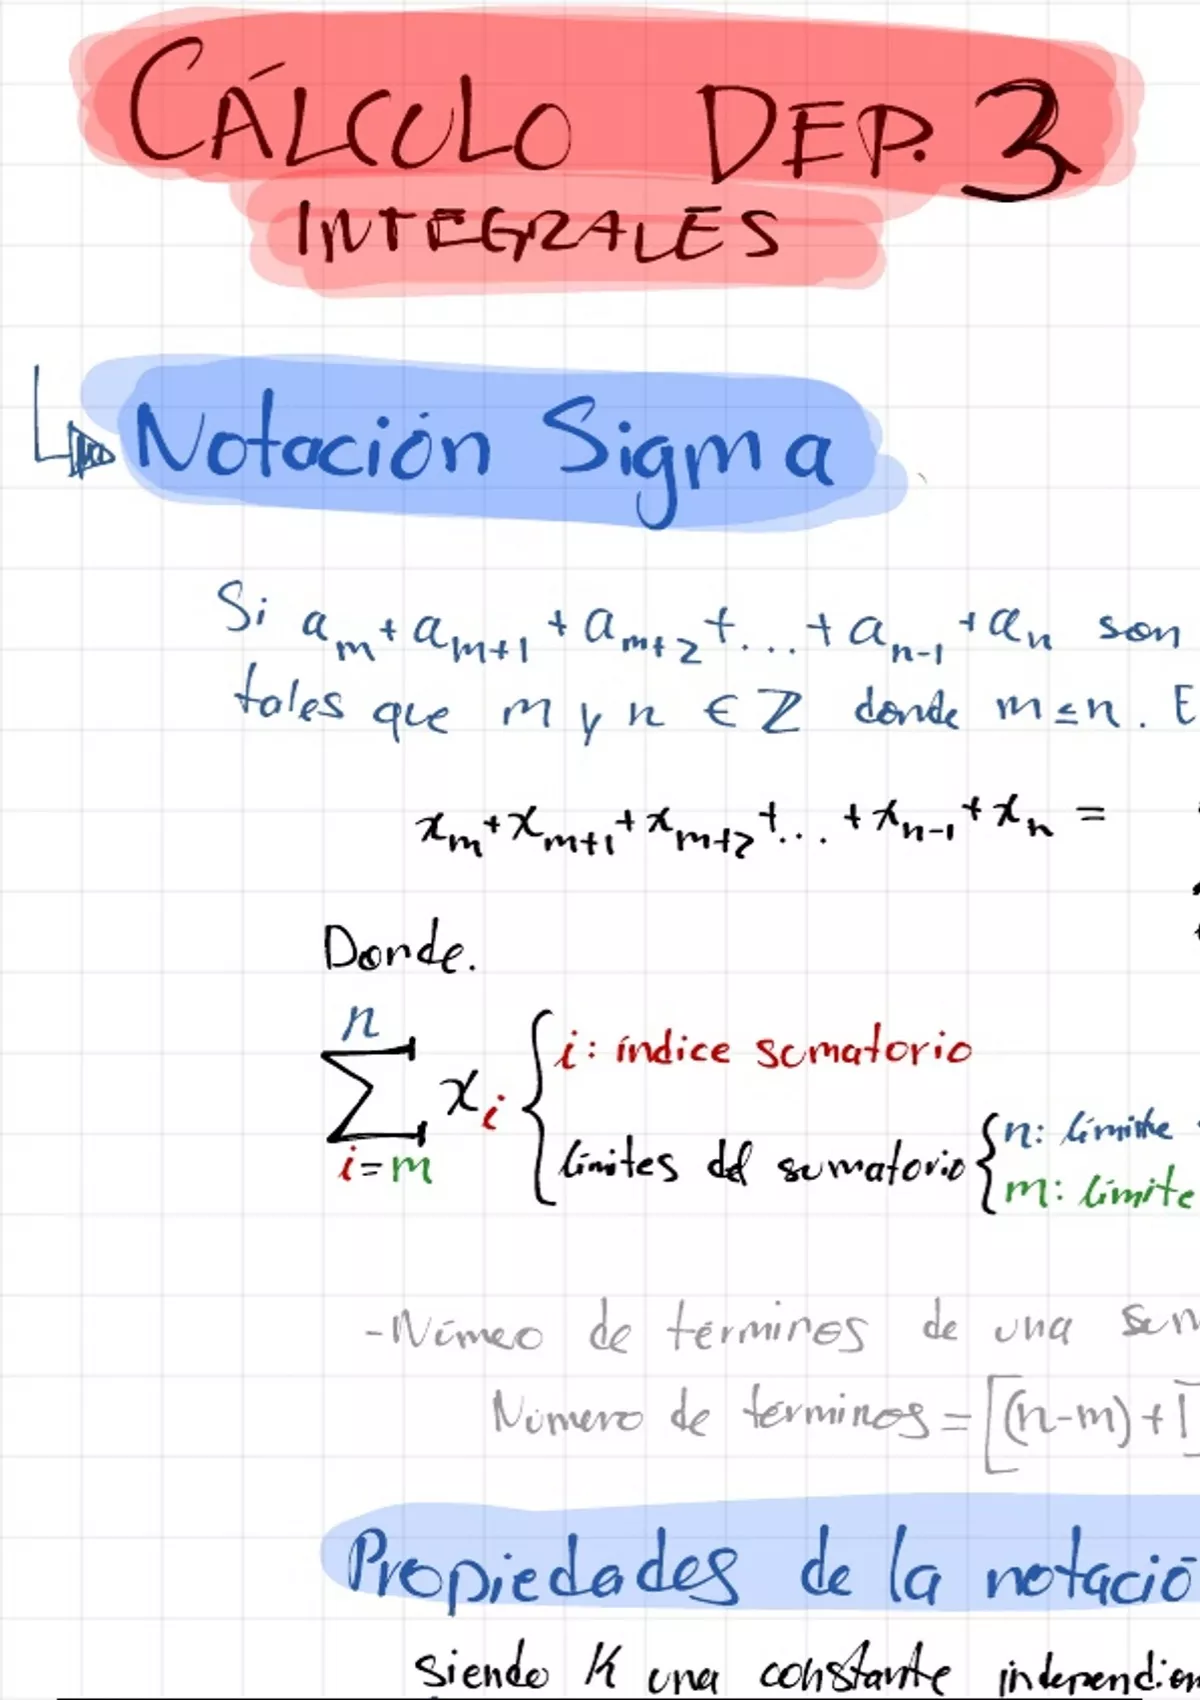 CÁLCULO DEP. 3
INTEGRALES
Notación Sigma
Si aₘ + aₘ₊₁ + aₘ₊₂ + ... + aₙ₋₁ + aₙ son
tales que m y n ∈ Z donde m ≤ n. E
xₘ + xₘ₊₁ + xₘ₊₂ + ... + xₙ₋₁ + xₙ =
Donde.
n
∑ xᵢ
i=m
i: índice sumatorio
límites del sumatorio
n: límite
m: límite
-Númeo de términos de una sum
Número de términos = [(n-m)+1]
Propiedades de la notació
siendo K una constante independien